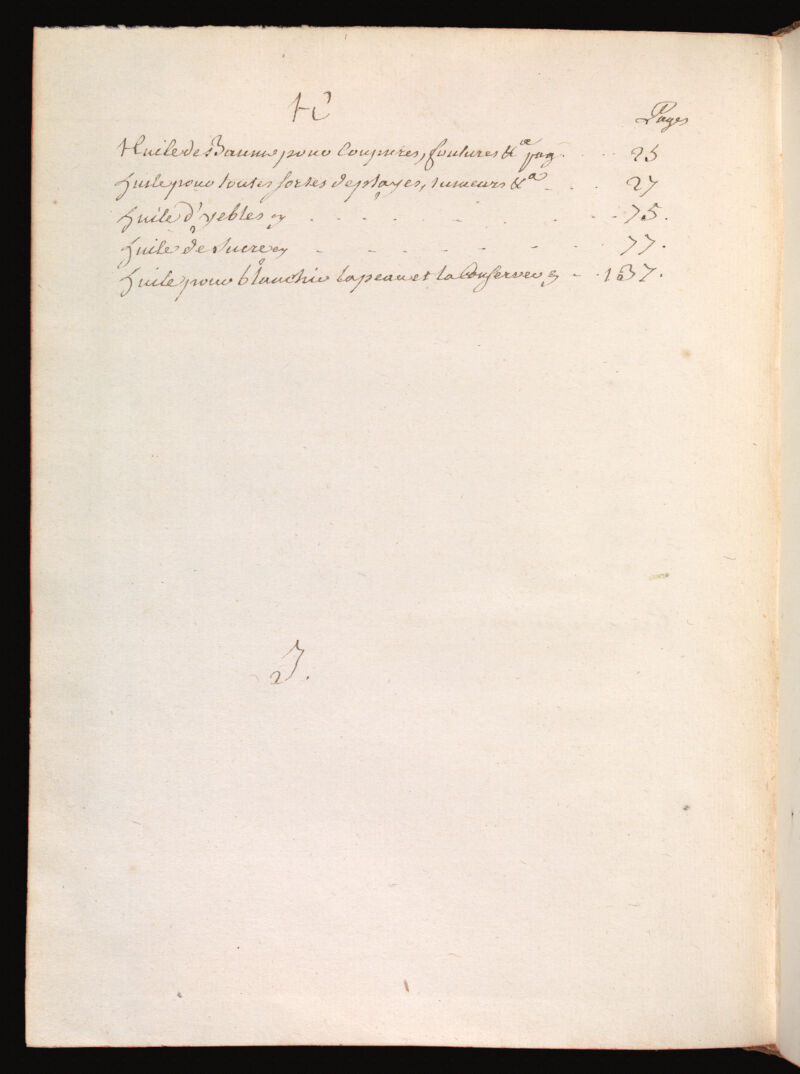 H
Pages
Huile de Baume pour Coupures, foulures &a pag. 25
huile pour toutes sortes de playes, tumeurs &a 27
huile d'yebles 75.
huile de Sucre 77.
huile pour blanchir la peau et la Conserver 137.
J.